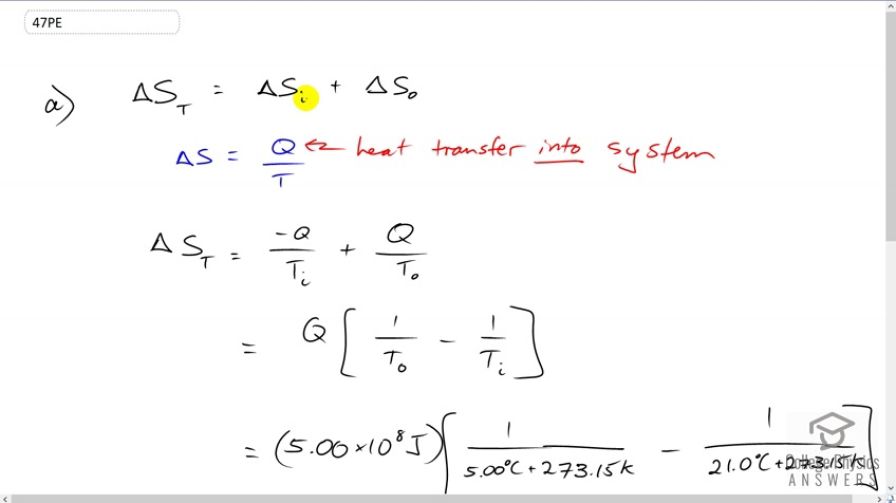 47PE
a) ΔS_T = ΔS_i + ΔS_o
ΔS = Q/T ← heat transfer into system
ΔS_T = -Q/T_i + Q/T_o
= Q [ 1/T_o - 1/T_i ]
= (5.00×10^8 J) [ 1/(5.00°C + 273.15K) - 1/(21.0°C + 273.15K) ]
College Physics
ANSWERS